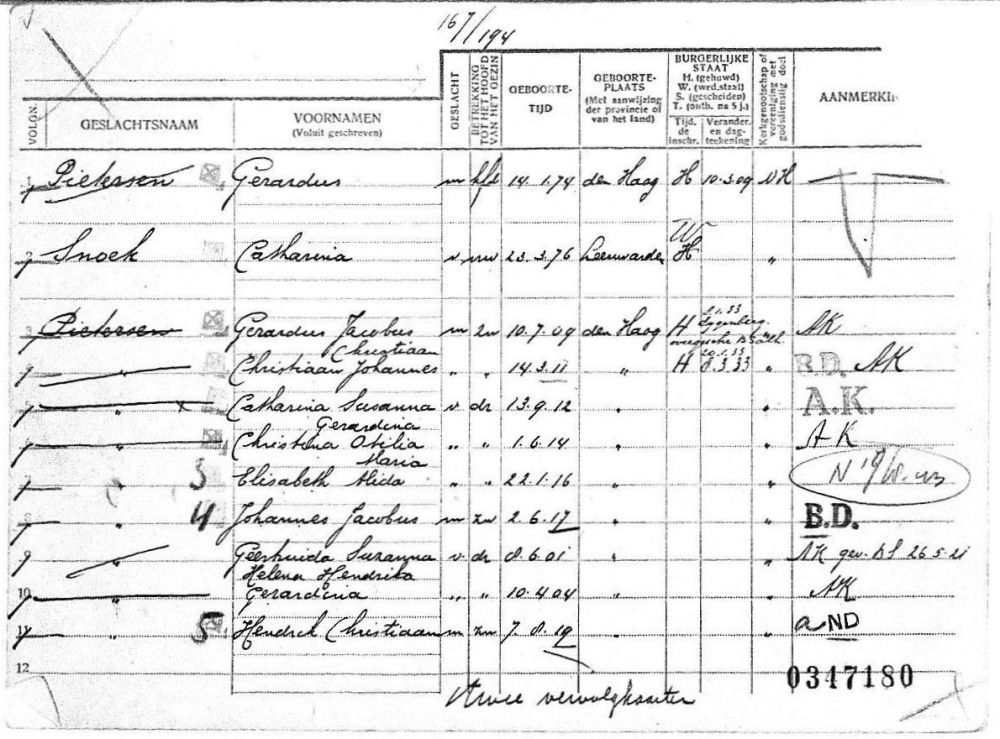 167/194
VOLGN.
GESLACHTSNAAM
VOORNAMEN
(Voluit geschreven)
GESLACHT
BETREKKING
TOT HET HOOFD
VAN HET GEZIN
GEBOORTE-
TIJD
GEBOORTE-
PLAATS
(Met aanwijzing
der provincie of
van het land)
BURGERLIJKE
STAAT
H. (gehuwd)
W. (wed.staat)
S. (gescheiden)
T. (ontb. na 5 j.)
Tijd.
de
inschr.
Verander.
en dag-
teekening
Kerkgenootschap of
vereeniging met
godsdienstig doel
AANMERKIN
1 Pietersen Gerardus m hfd 14.1.74 den Haag H 10.3.09 NH
W
2 Snoek Catharina v vrw 23.3.76 Leeuwarden H "
3 Pietersen Gerardus Jacobus m zn 10.7.09 den Haag H AK
Christiaan
4 " Christiaan Johannes " " 14.3.11 " H 8.3.33 " B.D. AK
5 " x Catharina Susanna v dr 13.9.12 " " A.K.
Gerardina
6 " Christina Otilia " " 1.6.14 " " AK
Maria
7 " 5 Elisabeth Alida " " 22.1.16 " "
8 " 4 Johannes Jacobus m zn 2.6.17 " " B.D.
9 " Geertruida Suzanna v dr 8.6.01 " " AK gev. BS 26.5.21
Helena Hendrika
10 " Gerardina " " 10.4.04 " " AK
11 " 5 Hendrik Christiaan m zn 7.8.19 " " aND
12
0347180
twee vervolgkaarten